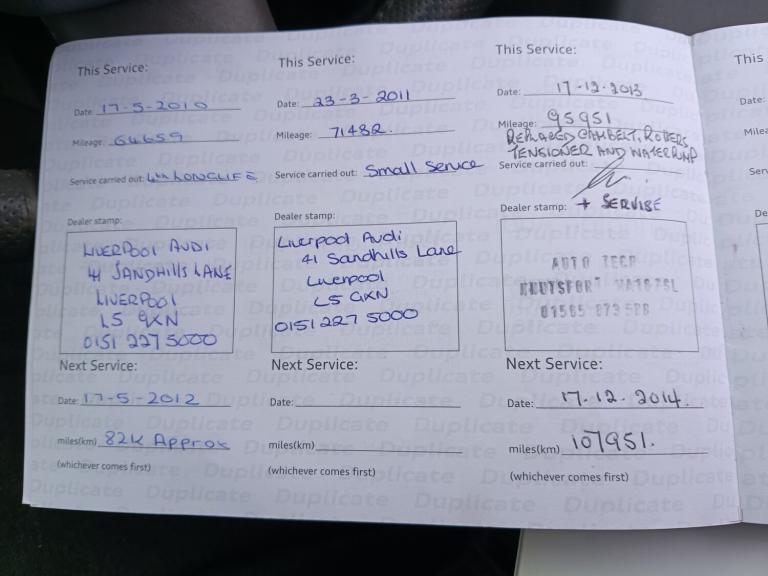 This Service:
Date: 17-5-2010
Mileage: 64659
Service carried out: 4th LONGLIFE
Dealer stamp:
LIVERPOOL AUDI
41 SANDHILLS LANE
LIVERPOOL
L5 9XN
0151 227 5000
Next Service:
Date: 17-5-2012
miles(km) 82K Approx
(whichever comes first)
This Service:
Date: 23-3-2011
Mileage: 71482.
Service carried out: Small Service
Dealer stamp:
Liverpool Audi
41 Sandhills Lane
Liverpool
L5 9XN
0151 227 5000
Next Service:
Date:
miles(km)
(whichever comes first)
This Service:
Date: 17-12-2013
Mileage: 95951
REPLACED CAMBELT, ROLLERS,
TENSIONER AND WATERPUMP
Service carried out:
Dealer stamp: + SERVISE
AUTO TECH
KNUTSFORD
01565
Next Service:
Date: 17.12.2014.
miles(km) 107951.
(whichever comes first)
This
Date:
Duplicate